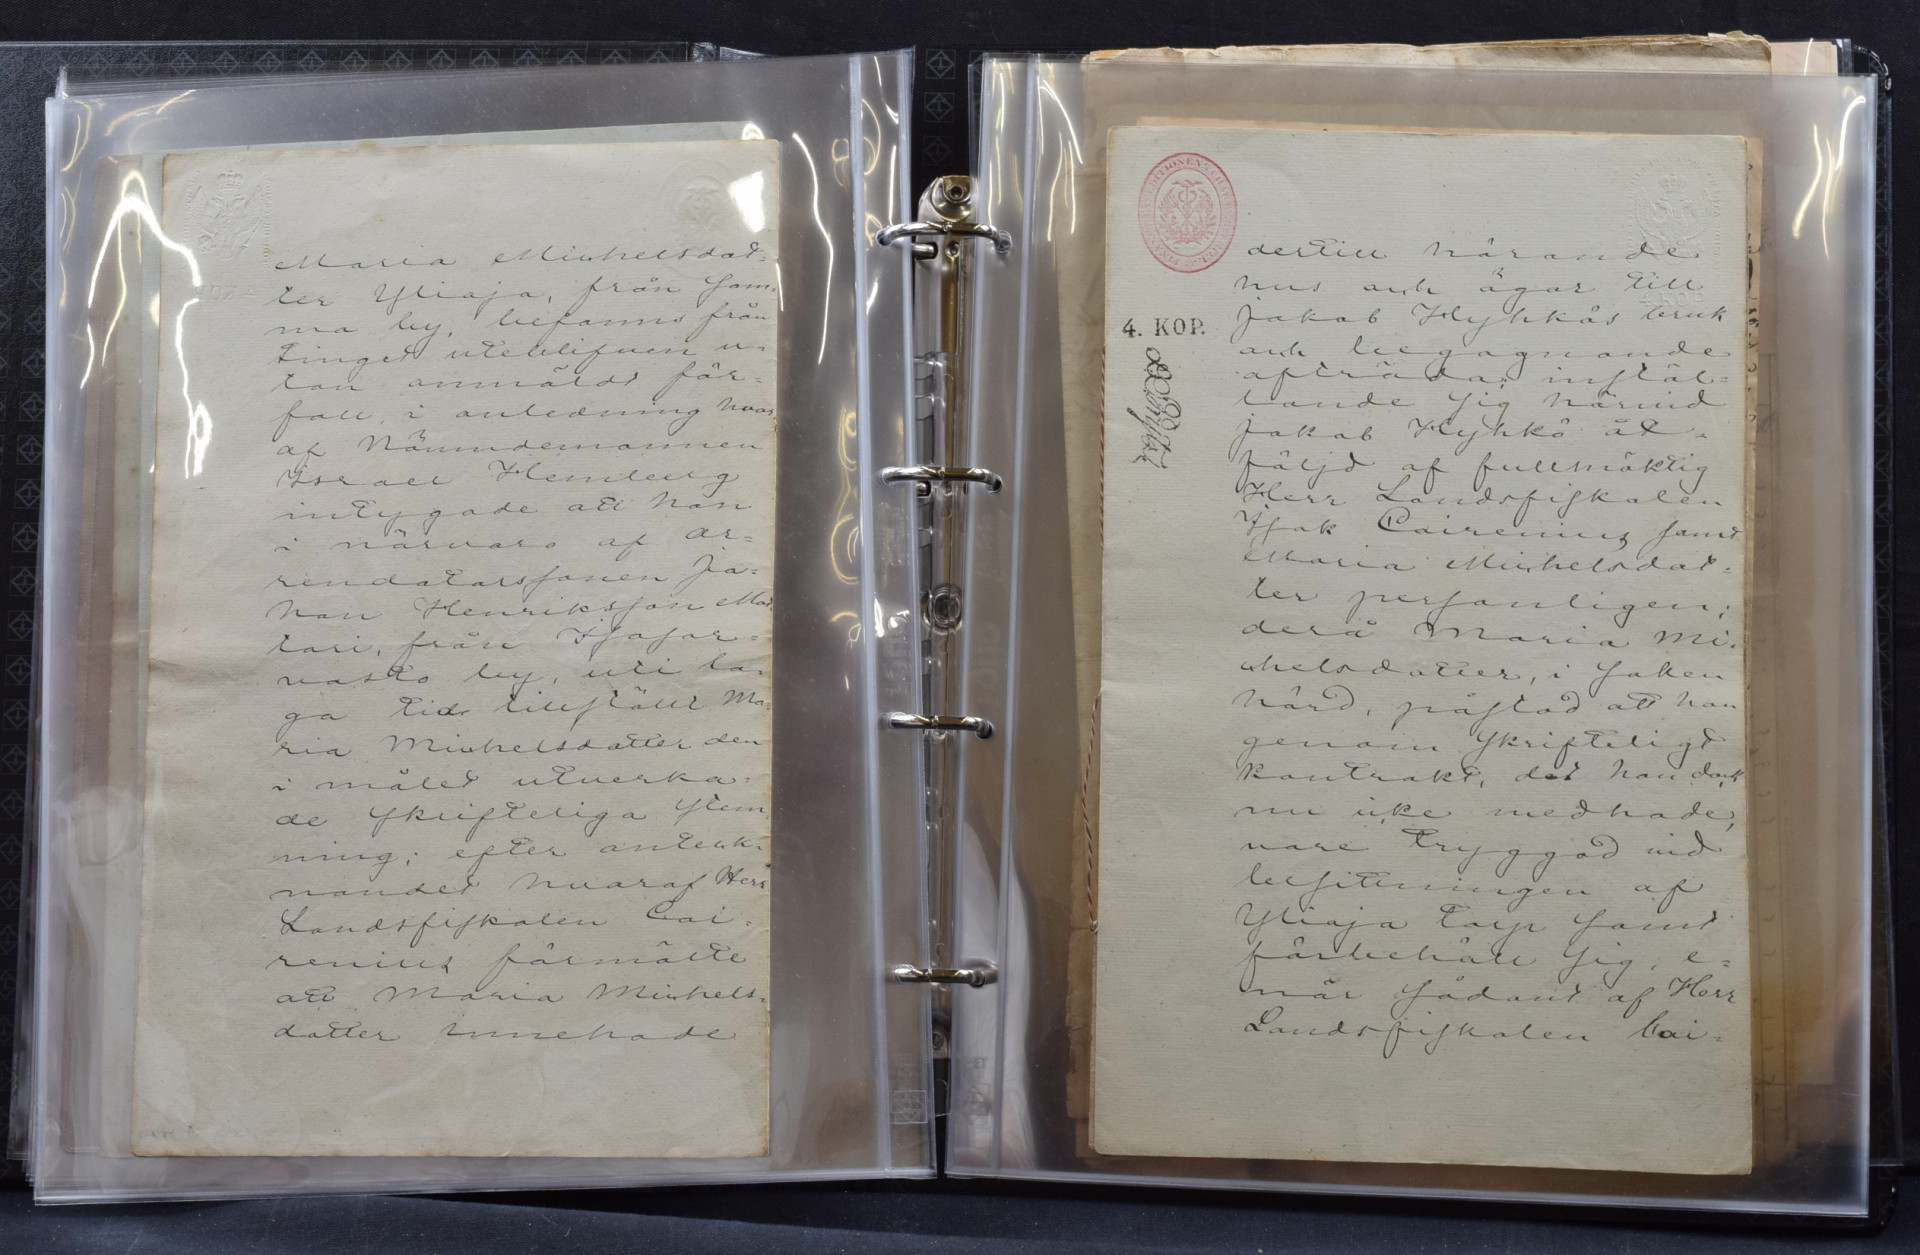 Maria Michelsdot-
ter Yliaja, från sam-
ma by, befanns från
tinget uteblifven u-
tan anmäldt för-
fall, i anledning hvar-
af Nämndemannen
Israel Hemberg
intygade att han
i närvaro af Ar-
rendatorssonen Jo-
han Henriksson Mat-
tari, från
by, uti la-
ga tid tillstält Ma-
ria Michelsdotter den
i målet utverka-
de skrifteliga stem
ning; efter anteck-
nandet hvaraf Herr
Landsfiskalen Cai-
renius förmälte
att Maria Michels-
dotter innehade
4. KOP.
dertill hörande
hus och ägor till
Jakob Hyhkös bruk
och begagnande
afträda; instäl-
lande sig härvid
Jakob Hyhkö åt-
följd af fullmäktig
Herr Landsfiskalen
Isak Cairenius samt
Maria Michelsdot-
ter personligen;
derå Maria Mi-
chelsdotter, i saken
hörd, påstod att hon
genom skrifteligt
kontrakt, det hon dock
nu icke medhade,
vore tryggad vid
besittningen af
Yliaja torp samt
förbehöll sig, e-
när sådant af Herr
Landsfiskalen Cai-